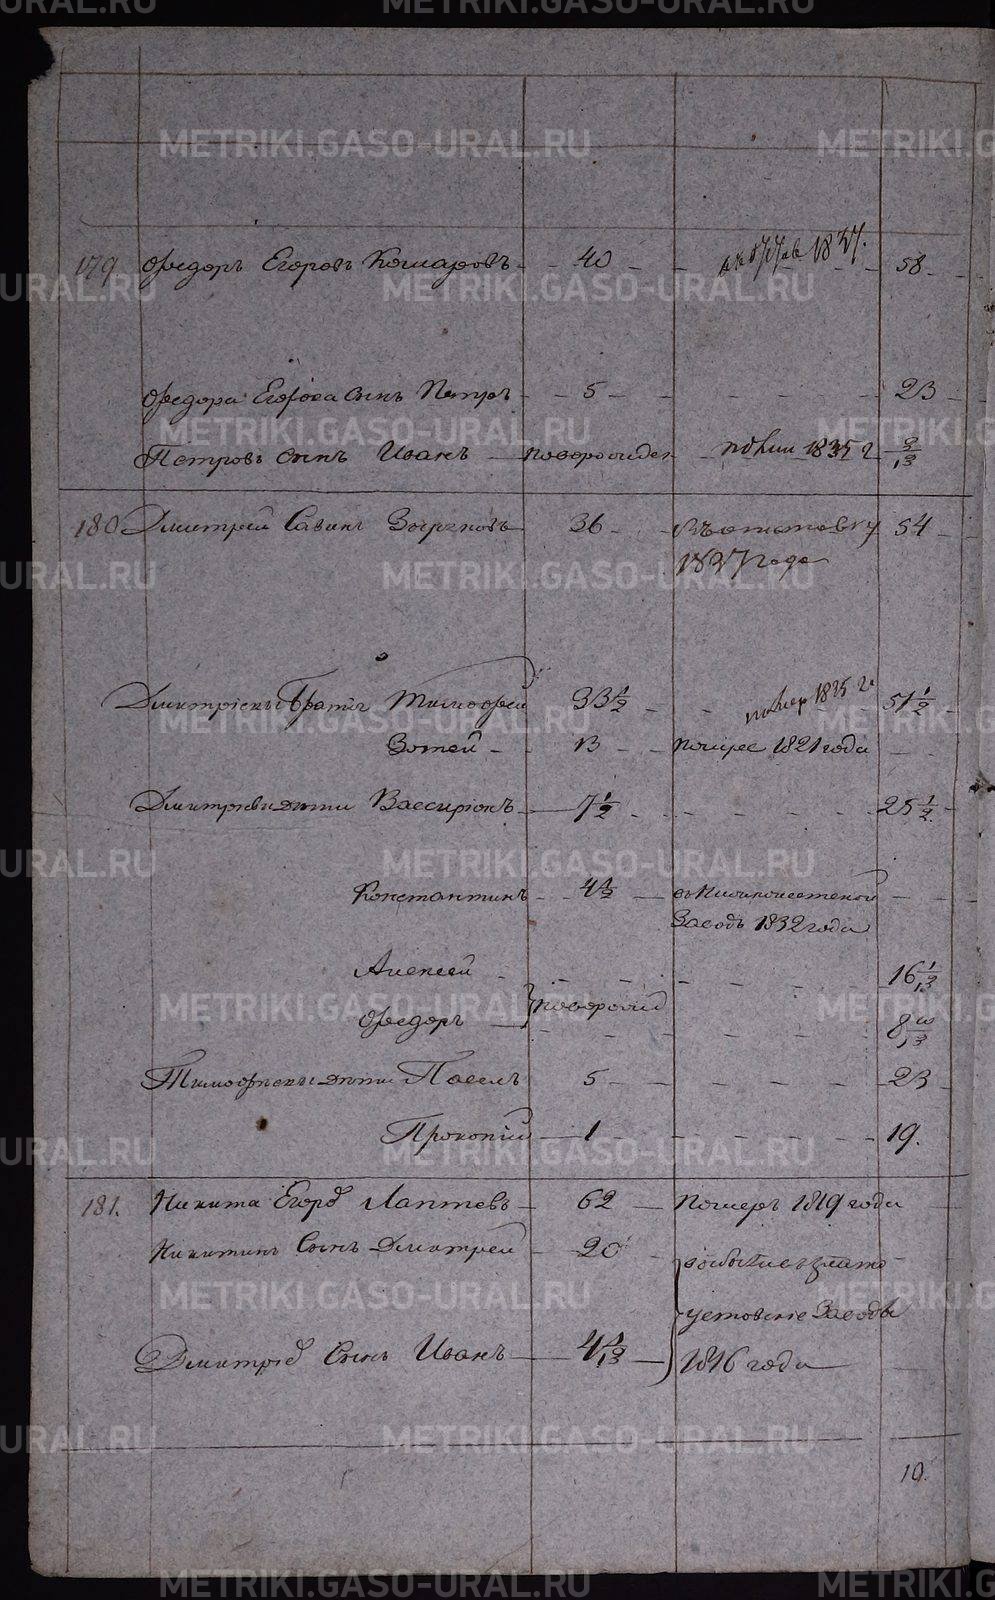 METRIKI.GASO-URAL.RU
179 Федоръ Егоровъ Комаровъ 40 1837. 58
Федора Егорова сынъ Петръ 5 23
Петровъ сынъ Иванъ новорожден 1835 г
180 Дмитрей Савинъ 36 въ отставку 54
1837 года
Дмитріевы братья Тимофей 33½ 1835 го 51½
Зотей 13 помре 1821 года
Дмитріевы дѣти Вассиріонъ 7½ 25½
Константинъ 4½
Заводъ 1832 года
Алексей 16
новорожд
Федоръ 8
Тимофѣевы дѣти Павелъ 5 23
Прокопій 1 19.
181. Никита Егоровъ Лаптевъ 62 Померъ 1819 года
Никитинъ Сынъ Дмитрей 20 Злато
устовскіе Заводы
Дмитріевъ Сынъ Иванъ 4 1816 года
10.